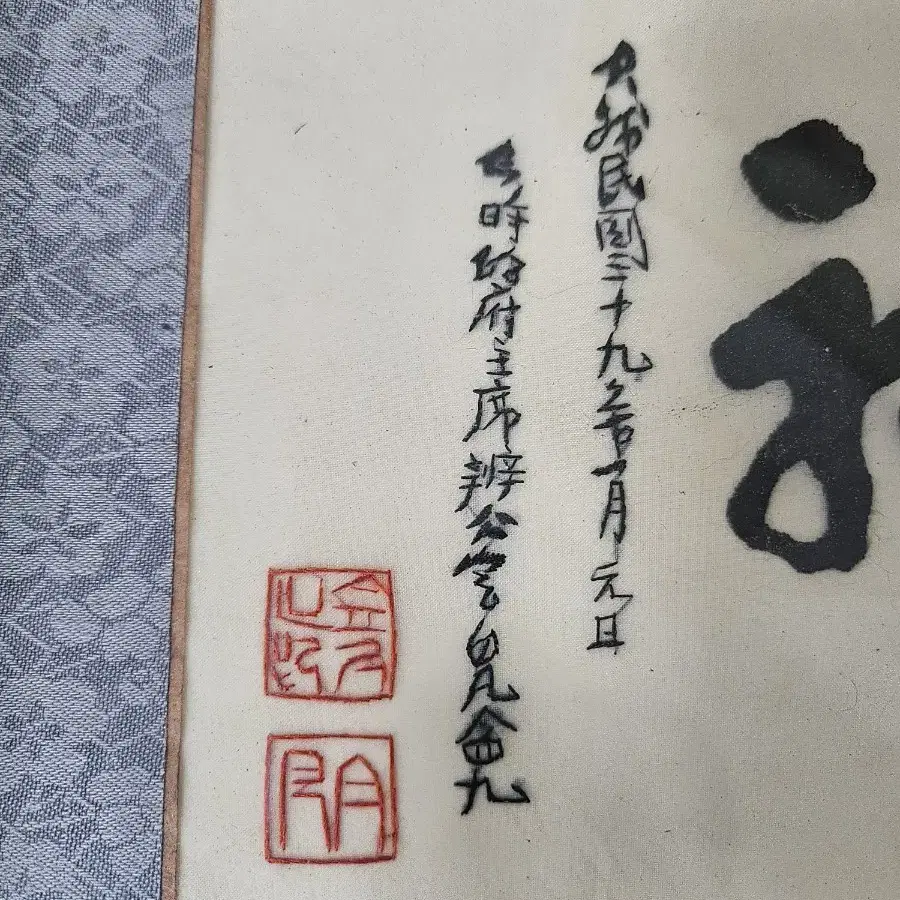 大韓民國三十九年一月元日
臨時政府主席辨公室白凡金九